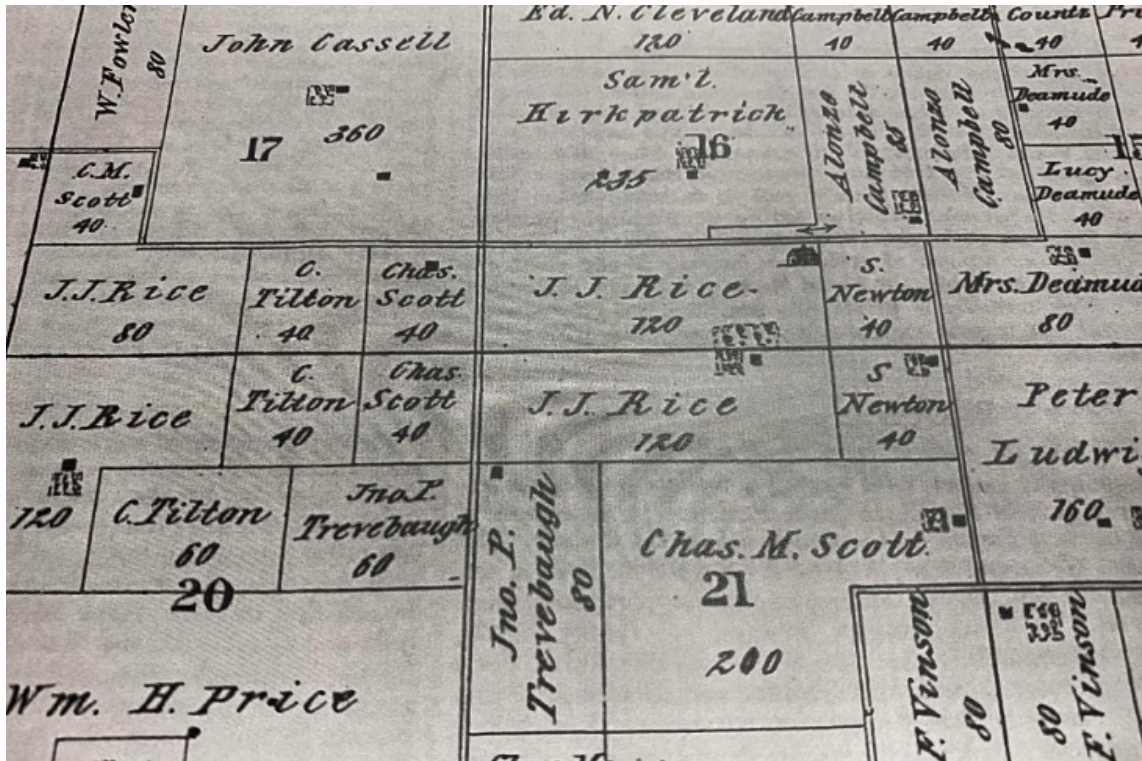 W. Fowler
80
John Cassell
17
360
Ed. N. Cleveland
120
Campbell
40
Campbell
40
Countz
40
Sam'l.
Kirkpatrick
16
235
Alonzo
Campbell
85
Alonzo
Campbell
80
Mrs.
Deamude
40
Lucy
Deamude
40
C.M.
Scott
40
J.J. Rice
80
C.
Tilton
40
Chas.
Scott
40
J. J. Rice
120
S.
Newton
40
Mrs. Deamud
80
J.J. Rice
120
C.
Tilton
40
Chas.
Scott
40
J. J. Rice
120
S
Newton
40
Peter
Ludwi
160
C. Tilton
60
Jno. P.
Trevebaugh
60
20
Jno. P.
Trevebaugh
80
Chas. M. Scott.
21
200
Wm. H. Price
F. Vinson
80
F. Vinson
80